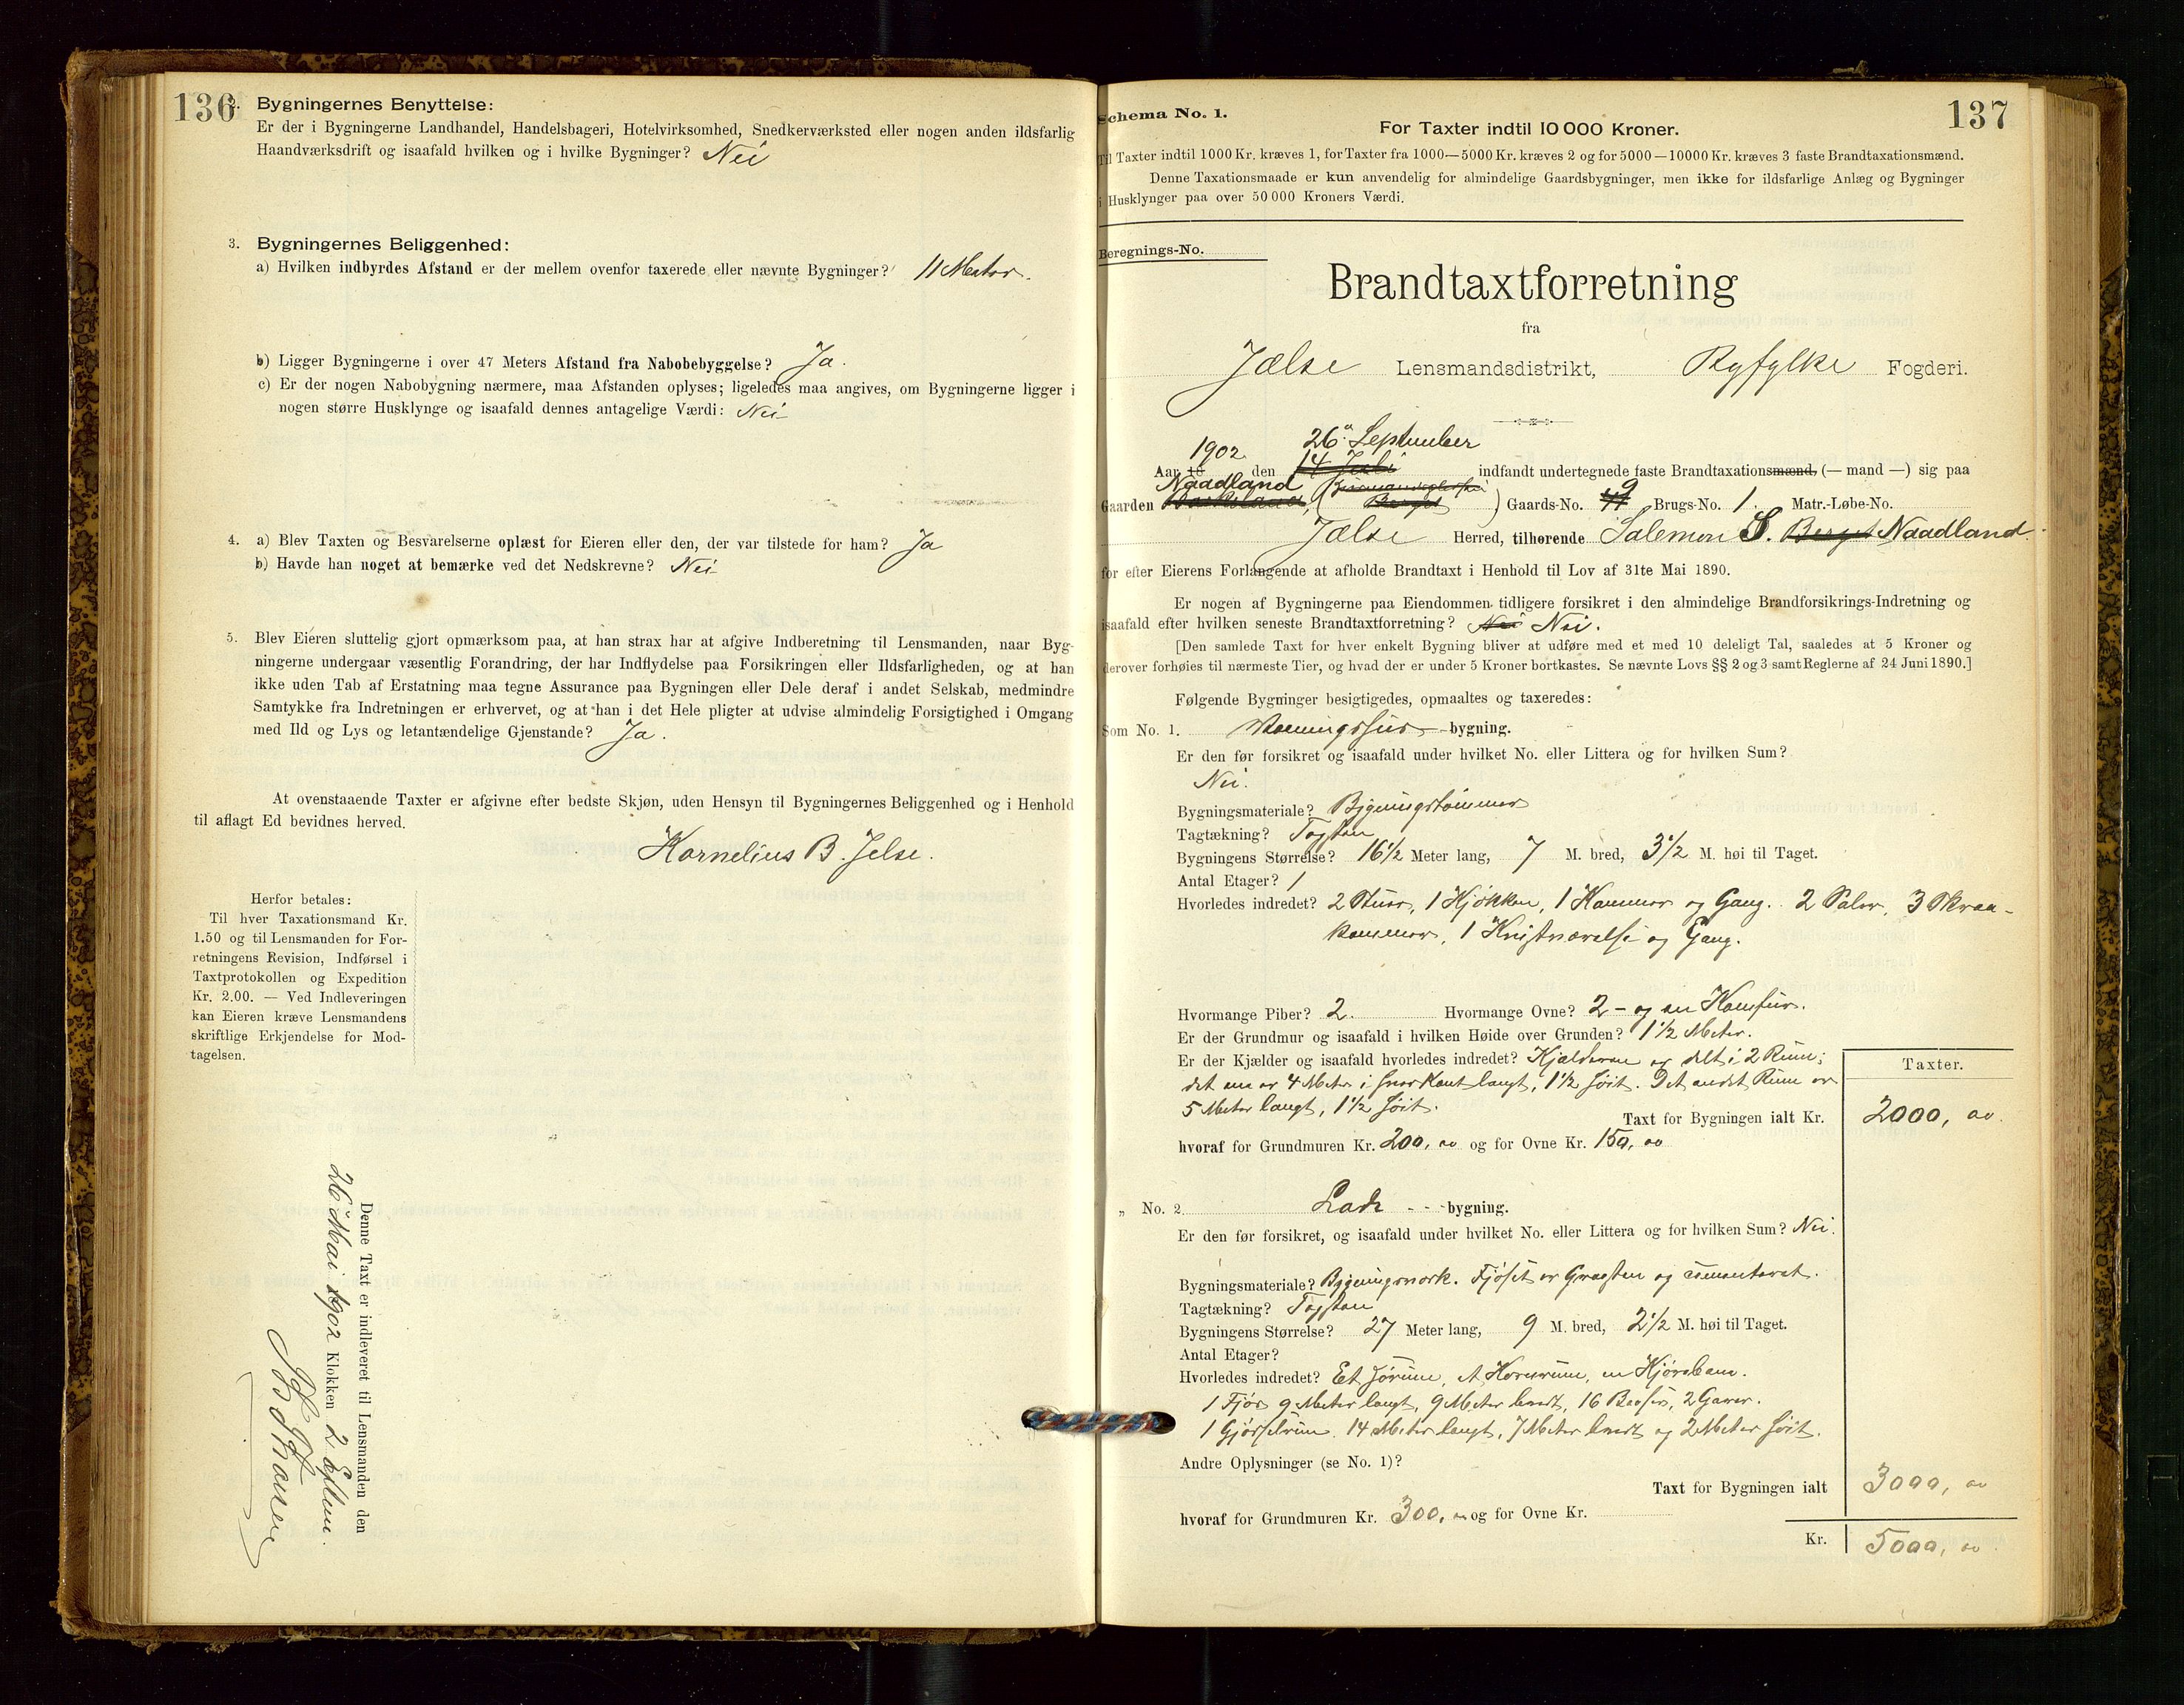 136
2. Bygningernes Benyttelse:
Er der i Bygningerne Landhandel, Handelsbageri, Hotelvirksomhed, Snedkerværksted eller nogen anden ildsfarlig
Haandværksdrift og isaafald hvilken og i hvilke Bygninger? Nei
3. Bygningernes Beliggenhed:
a) Hvilken indbyrdes Afstand er der mellem ovenfor taxerede eller nævnte Bygninger? 11 Meter.
b) Ligger Bygningerne i over 47 Meters Afstand fra Nabobebyggelse? Ja.
c) Er der nogen Nabobygning nærmere, maa Afstanden oplyses; ligeledes maa angives, om Bygningerne ligger i
nogen større Husklynge og isaafald dennes antagelige Værdi: Nei
4. a) Blev Taxten og Besvarelserne oplæst for Eieren eller den, der var tilstede for ham? Ja
b) Havde han noget at bemærke ved det Nedskrevne? Nei
5. Blev Eieren sluttelig gjort opmærksom paa, at han strax har at afgive Indberetning til Lensmanden, naar Byg-
ningerne undergaar væsentlig Forandring, der har Indflydelse paa Forsikringen eller Ildsfarligheden, og at han
ikke uden Tab af Erstatning maa tegne Assurance paa Bygningen eller Dele deraf i andet Selskab, medmindre
Samtykke fra Indretningen er erhvervet, og at han i det Hele pligter at udvise almindelig Forsigtighed i Omgang
med Ild og Lys og letantændelige Gjenstande? Ja.
At ovenstaaende Taxter er afgivne efter bedste Skjøn, uden Hensyn til Bygningernes Beliggenhed og i Henhold
til aflagt Ed bevidnes herved.
Kornelius B. Jelse.
Herfor betales:
Til hver Taxationsmand Kr.
1.50 og til Lensmanden for For-
retningens Revision, Indførsel i
Taxtprotokollen og Expedition
Kr. 2.00. — Ved Indleveringen
kan Eieren kræve Lensmandens
skriftlige Erkjendelse for Mod-
tagelsen.
Denne Taxt er indleveret til Lensmanden den
26 Mai 1902 Klokken 2 Eftm.
137
Schema No. 1.
For Taxter indtil 10000 Kroner.
Til Taxter indtil 1000 Kr. kræves 1, for Taxter fra 1000—5000 Kr. kræves 2 og for 5000—10000 Kr. kræves 3 faste Brandtaxationsmænd.
Denne Taxationsmaade er kun anvendelig for almindelige Gaardsbygninger, men ikke for ildsfarlige Anlæg og Bygninger
i Husklynger paa over 50000 Kroners Værdi.
Beregnings-No.
Brandtaxtforretning
fra
Jælse Lensmandsdistrikt, Ryfylke Fogderi.
1902 26 September
Aar 18 den 14 Juli indfandt undertegnede faste Brandtaxationsmænd (— mand —) sig paa
Naadland
Gaarden ( Berget ) Gaards-No. 9 Brugs-No. 1. Matr.-Løbe-No.
Jælse Herred, tilhørende Salemon S. Berget Naadland.
for efter Eierens Forlangende at afholde Brandtaxt i Henhold til Lov af 31te Mai 1890.
Er nogen af Bygningerne paa Eiendommen tidligere forsikret i den almindelige Brandforsikrings-Indretning og
isaafald efter hvilken seneste Brandtaxtforretning? Nei Nei.
[Den samlede Taxt for hver enkelt Bygning bliver at udføre med et med 10 deleligt Tal, saaledes at 5 Kroner og
derover forhøies til nærmeste Tier, og hvad der er under 5 Kroner bortkastes. Se nævnte Lovs §§ 2 og 3 samt Reglerne af 24 Juni 1890.]
Følgende Bygninger besigtigedes, opmaaltes og taxeredes:
Som No. 1. Vaaningshus bygning.
Er den før forsikret og isaafald under hvilket No. eller Littera og for hvilken Sum?
Nei.
Bygningsmateriale? Bygningstømmer
Tagtækning? Tagsten
Bygningens Størrelse? 16 1/2 Meter lang, 7 M. bred, 3 1/2 M. høi til Taget.
Antal Etager? 1
Hvorledes indredet? 2 Stuer, 1 Kjøkken, 1 Kammer og Gang. 2 Saler, 3 Skraa-
kammer, 1 Kvistværelse og Gang.
Hvormange Piber? 2. Hvormange Ovne? 2 - og en Komfur.
Er der Grundmur og isaafald i hvilken Høide over Grunden? 1 1/2 Meter.
Er der Kjælder og isaafald hvorledes indredet? Kjælderen er delt i 2 Rum;
det ene er 4 Meter i hver Kant langt, 1 1/2 høit. Det andet Rum er
5 Meter langt, 1 1/2 høit.
Taxter.
Taxt for Bygningen ialt Kr. 2000, 00
hvoraf for Grundmuren Kr. 200, 00 og for Ovne Kr. 150, 00
„ No. 2 Lade bygning.
Er den før forsikret, og isaafald under hvilket No. eller Littera og for hvilken Sum? Nei.
Bygningsmateriale? Bygningsverk. Fjøset er Graasten og cementeret.
Tagtækning? Tagsten
Bygningens Størrelse? 27 Meter lang, 9 M. bred, 2 1/2 M. høi til Taget.
Antal Etager?
Hvorledes indredet? Et Hørum, et Kornrum, en Kjørebane.
1 Fjøs 9 Meter langt, 9 Meter bredt, 16 Baaser, 2 Garer.
1 Gjødselrum 14 Meter langt, 7 Meter bredt og 2 Meter høit.
Andre Oplysninger (se No. 1)?
Taxt for Bygningen ialt 3000, 00
hvoraf for Grundmuren Kr. 300, 00 og for Ovne Kr.
Kr. 5000, 00